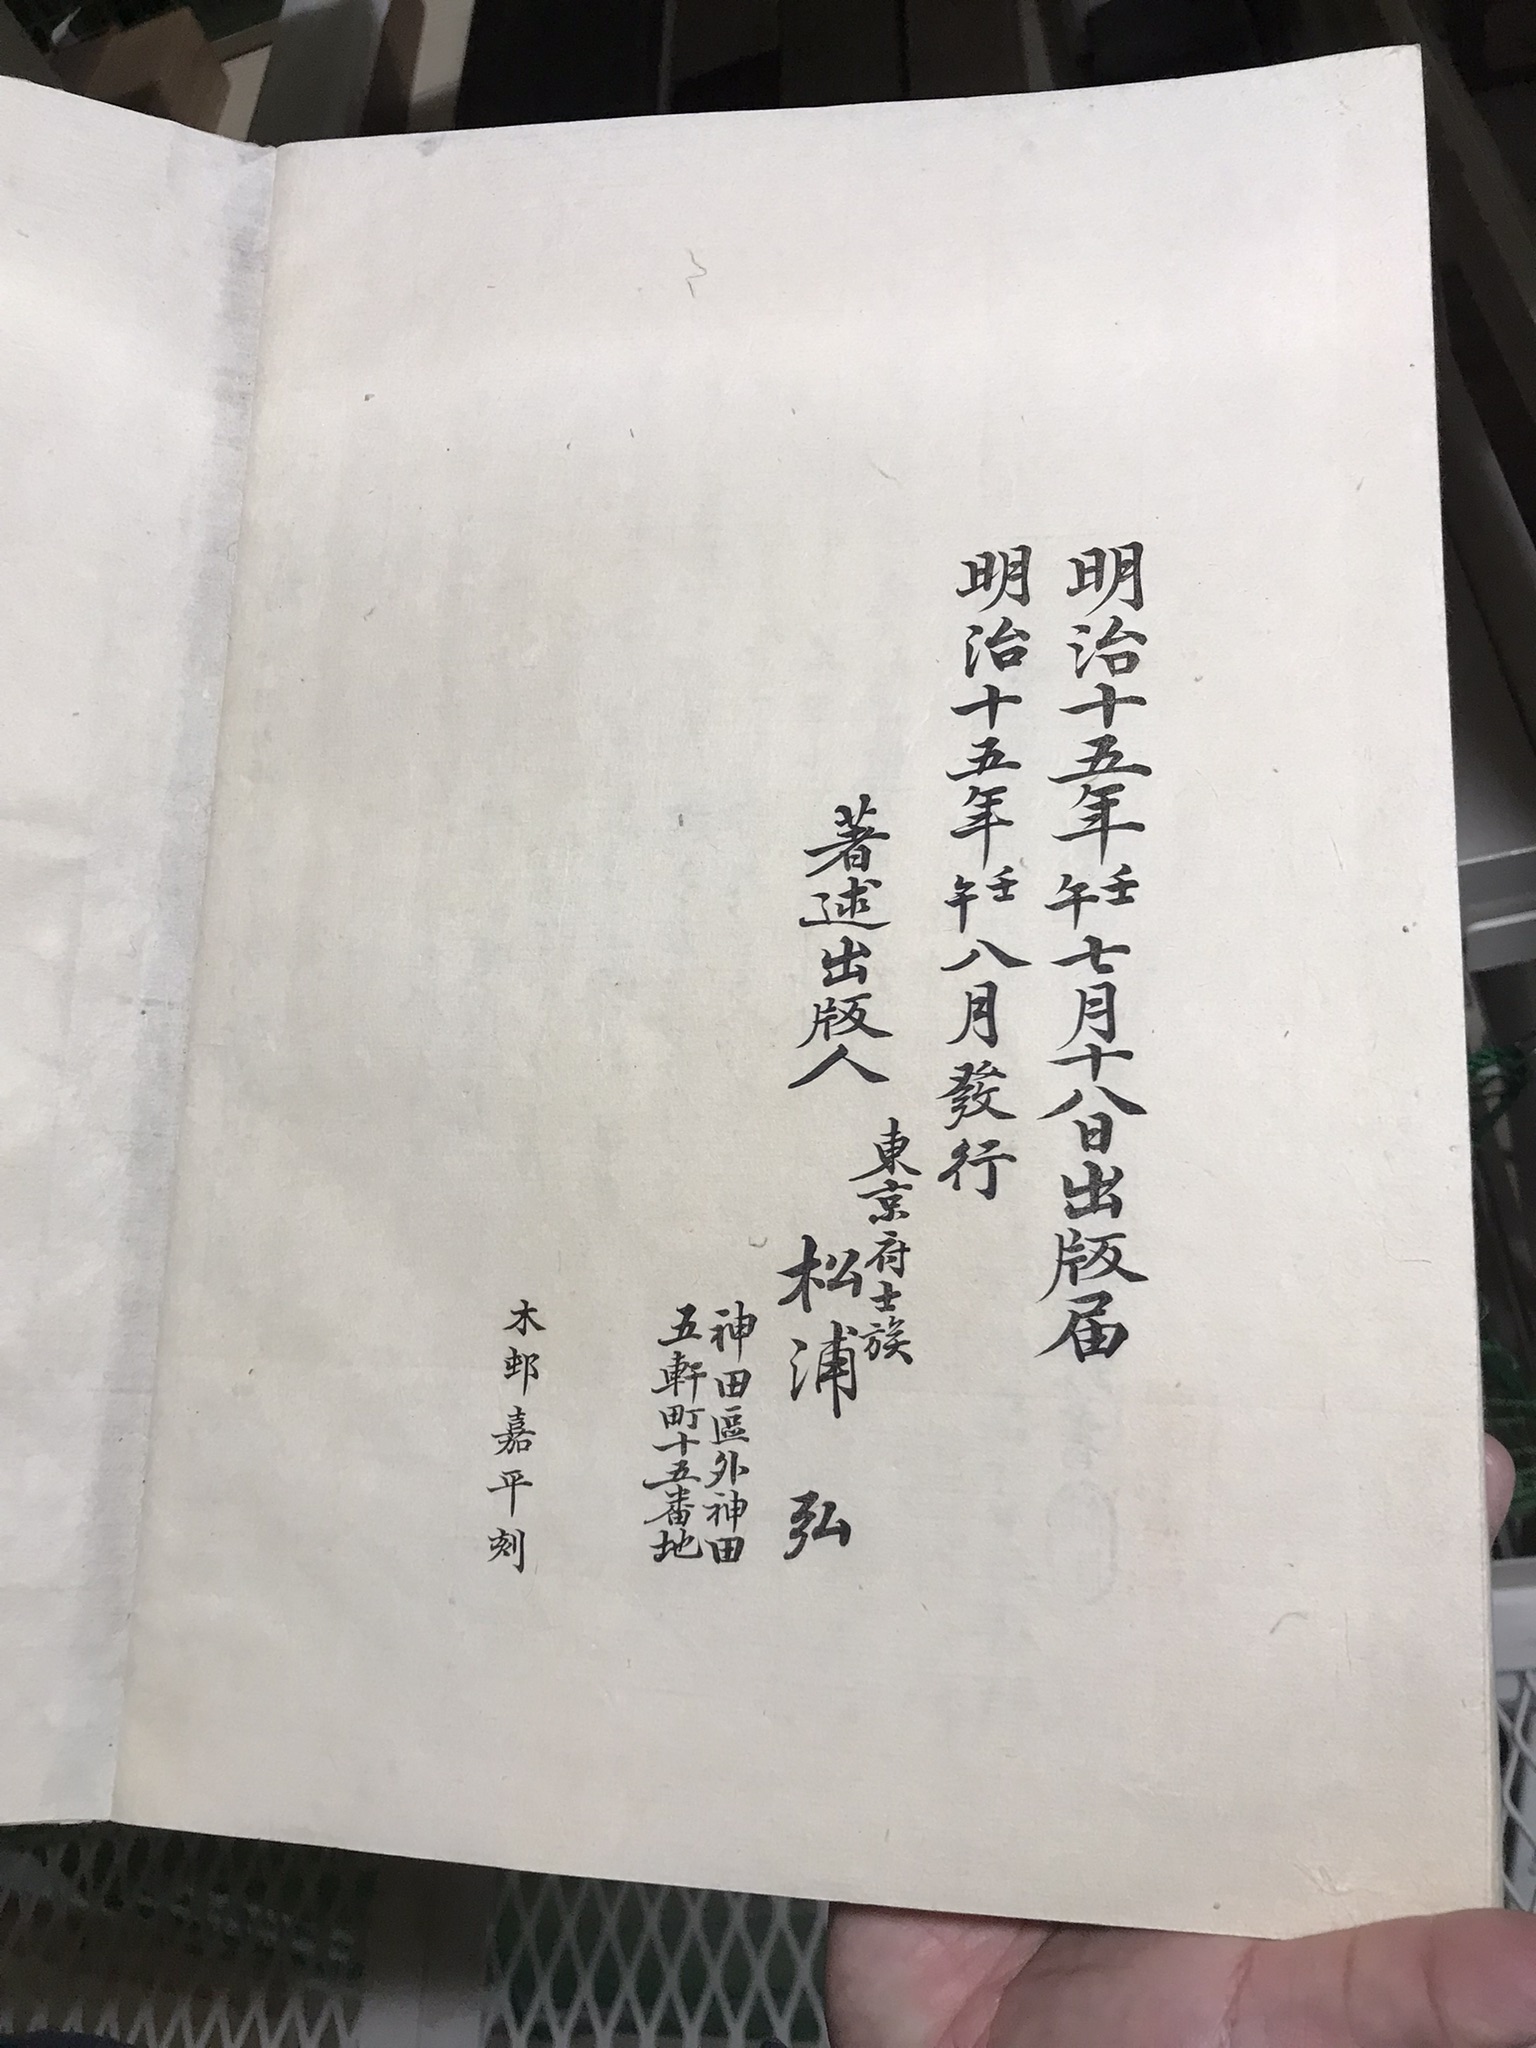 明治十五年壬午七月十八日出版届
明治十五年壬午八月發行
著述出版人
東京府士族
松浦弘
神田區外神田
五軒町十五番地
木邨嘉平刻